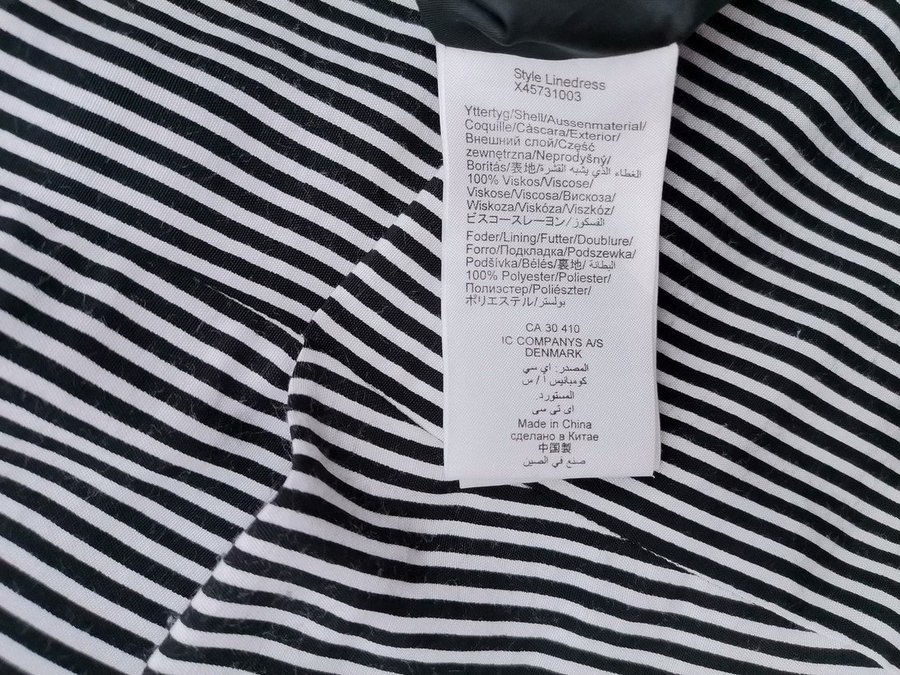 Style Linedress
X45731003
Yttertyg/Shell/Aussenmaterial/
Coquille/Cáscara/Exterior/
Внешний слой/Część
zewnętrzna/Neprodyšný/
Borítás/表地/الغطاء الذي يشبه القشرة
100% Viskos/Viscose/
Viskose/Viscosa/Вискоза/
Wiskoza/Viskóza/Viszkóz/
ビスコースレーヨン/الفسكوز
Foder/Lining/Futter/Doublure/
Forro/Подкладка/Podszewka/
Podšívka/Bélés/裏地/البطانة
100% Polyester/Poliester/
Полиэстер/Poliészter/
ポリエステル/بولستر
CA 30 410
IC COMPANYS A/S
DENMARK
المصدر: اي سي
كومبانيس ا / س
المستورد.
اى تى سى
Made in China
сделано в Китае
中国製
صنع في الصين